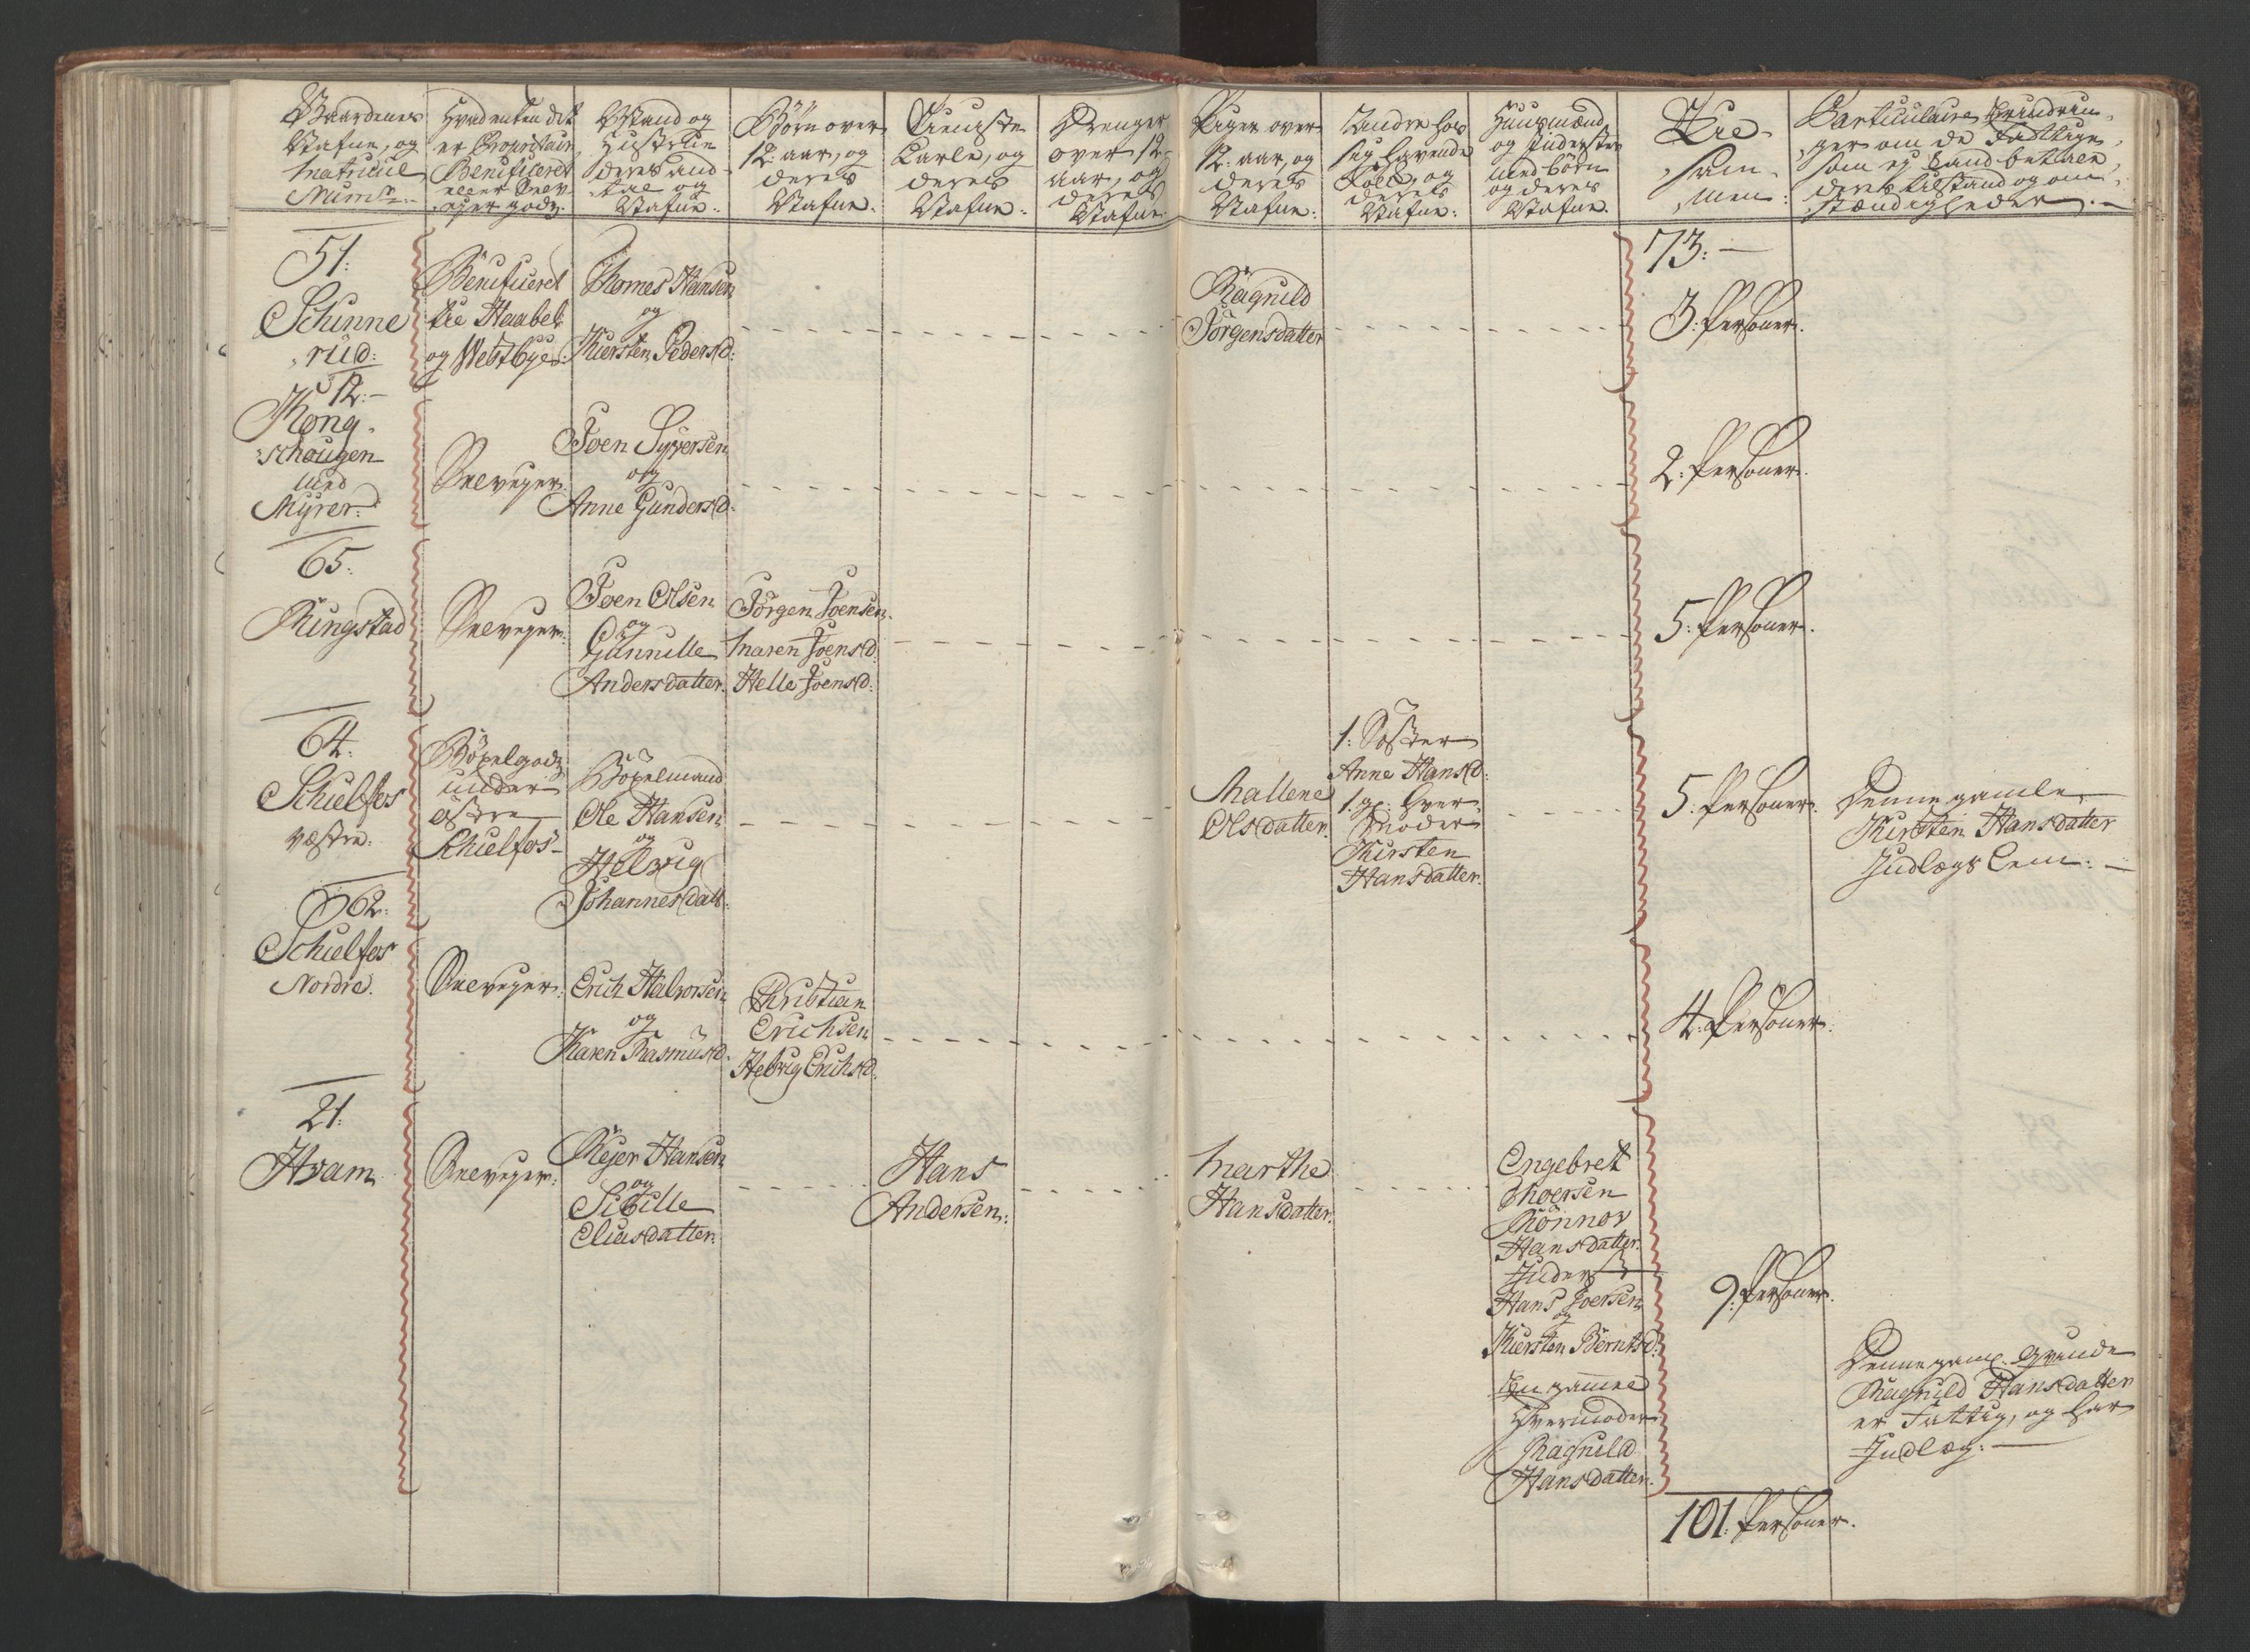 Gaardenes
Nafne, og
Matricul
Num:
Hvad enten det
er Proprietair
Benificeret
eller Selv
ejer godz.
Mand og
Hustrue
deres and
tal og
Nafne:
Börn over
12: aar, og
deres
Nafne:
Tieniste
Karle, og
deres
Nafne:
Drenger
over 12
aar, og
deres
Nafne
Piger over
12: aar, og
deres
Nafne:
Andre hos
sig havende
Folk, og
deres
Nafne:
Huusmænd
og Inderster
med börn
og deres
Nafne.
Til-
sam-
men:
Particulaire Erindrin-
ger om de Fattige
som ej kand betale,
deres tilstand og om-
stændigheder.
73:
51:
Schinne
rud:
Benificeret
til Haabel
og Westbye:
Thomes Hansen
og
Kiersten Pedersd:
Ragnild
Jörgensdatter
3: Personer.
12:
Kong-
schougen
med
Myrer:
Selvejer
Joen Syversen
og
Anne Gundersd:
2: Personer.
65:
Ringstad
Selvejer
Joen Olsen
og
Gunnille
Andersdatter.
Jörgen Joensen
Maren Joensd:
Helle Joensd:
5: Personer.
64:
Schielfos
væstre:
Böxelgodz
under
östre
Schielfos
Böxelmand
Ole Hansen
og
Helvig
Johannesdatt:
Mallene
Olsdatter.
1: Söster
Anne Hansd:
1 gl: Hver-
moder
Kirsten
Hansdatter.
5: Personer.
Denne gamle
Kirsten Hansdatter
Indlægs Lem:
62:
Schielfos
Nordre.
Selvejer:
Erich Halvorsen
og
Karen Rasmusd:
Christian
Erichsen
Helvig Erichsd:
4: Personer.
21:
Hvam
Selvejer:
Rejer Hansen
og
Sibille
Eliasdatter:
Hans
Andersen:
Marthe
Hansdatter.
Engebret
Thoersen
Rönnov
Hansdatter.
Inderst
Hans Joersen
og
Kiersten Berntsd:
En gammel
Hvermoder
Ragnild
Hansdatter.
9: Personer.
Denne gaml: Qvinde
Ragnild Hansdatter
er Fattig, og har
Indlæg:
101: Personer.